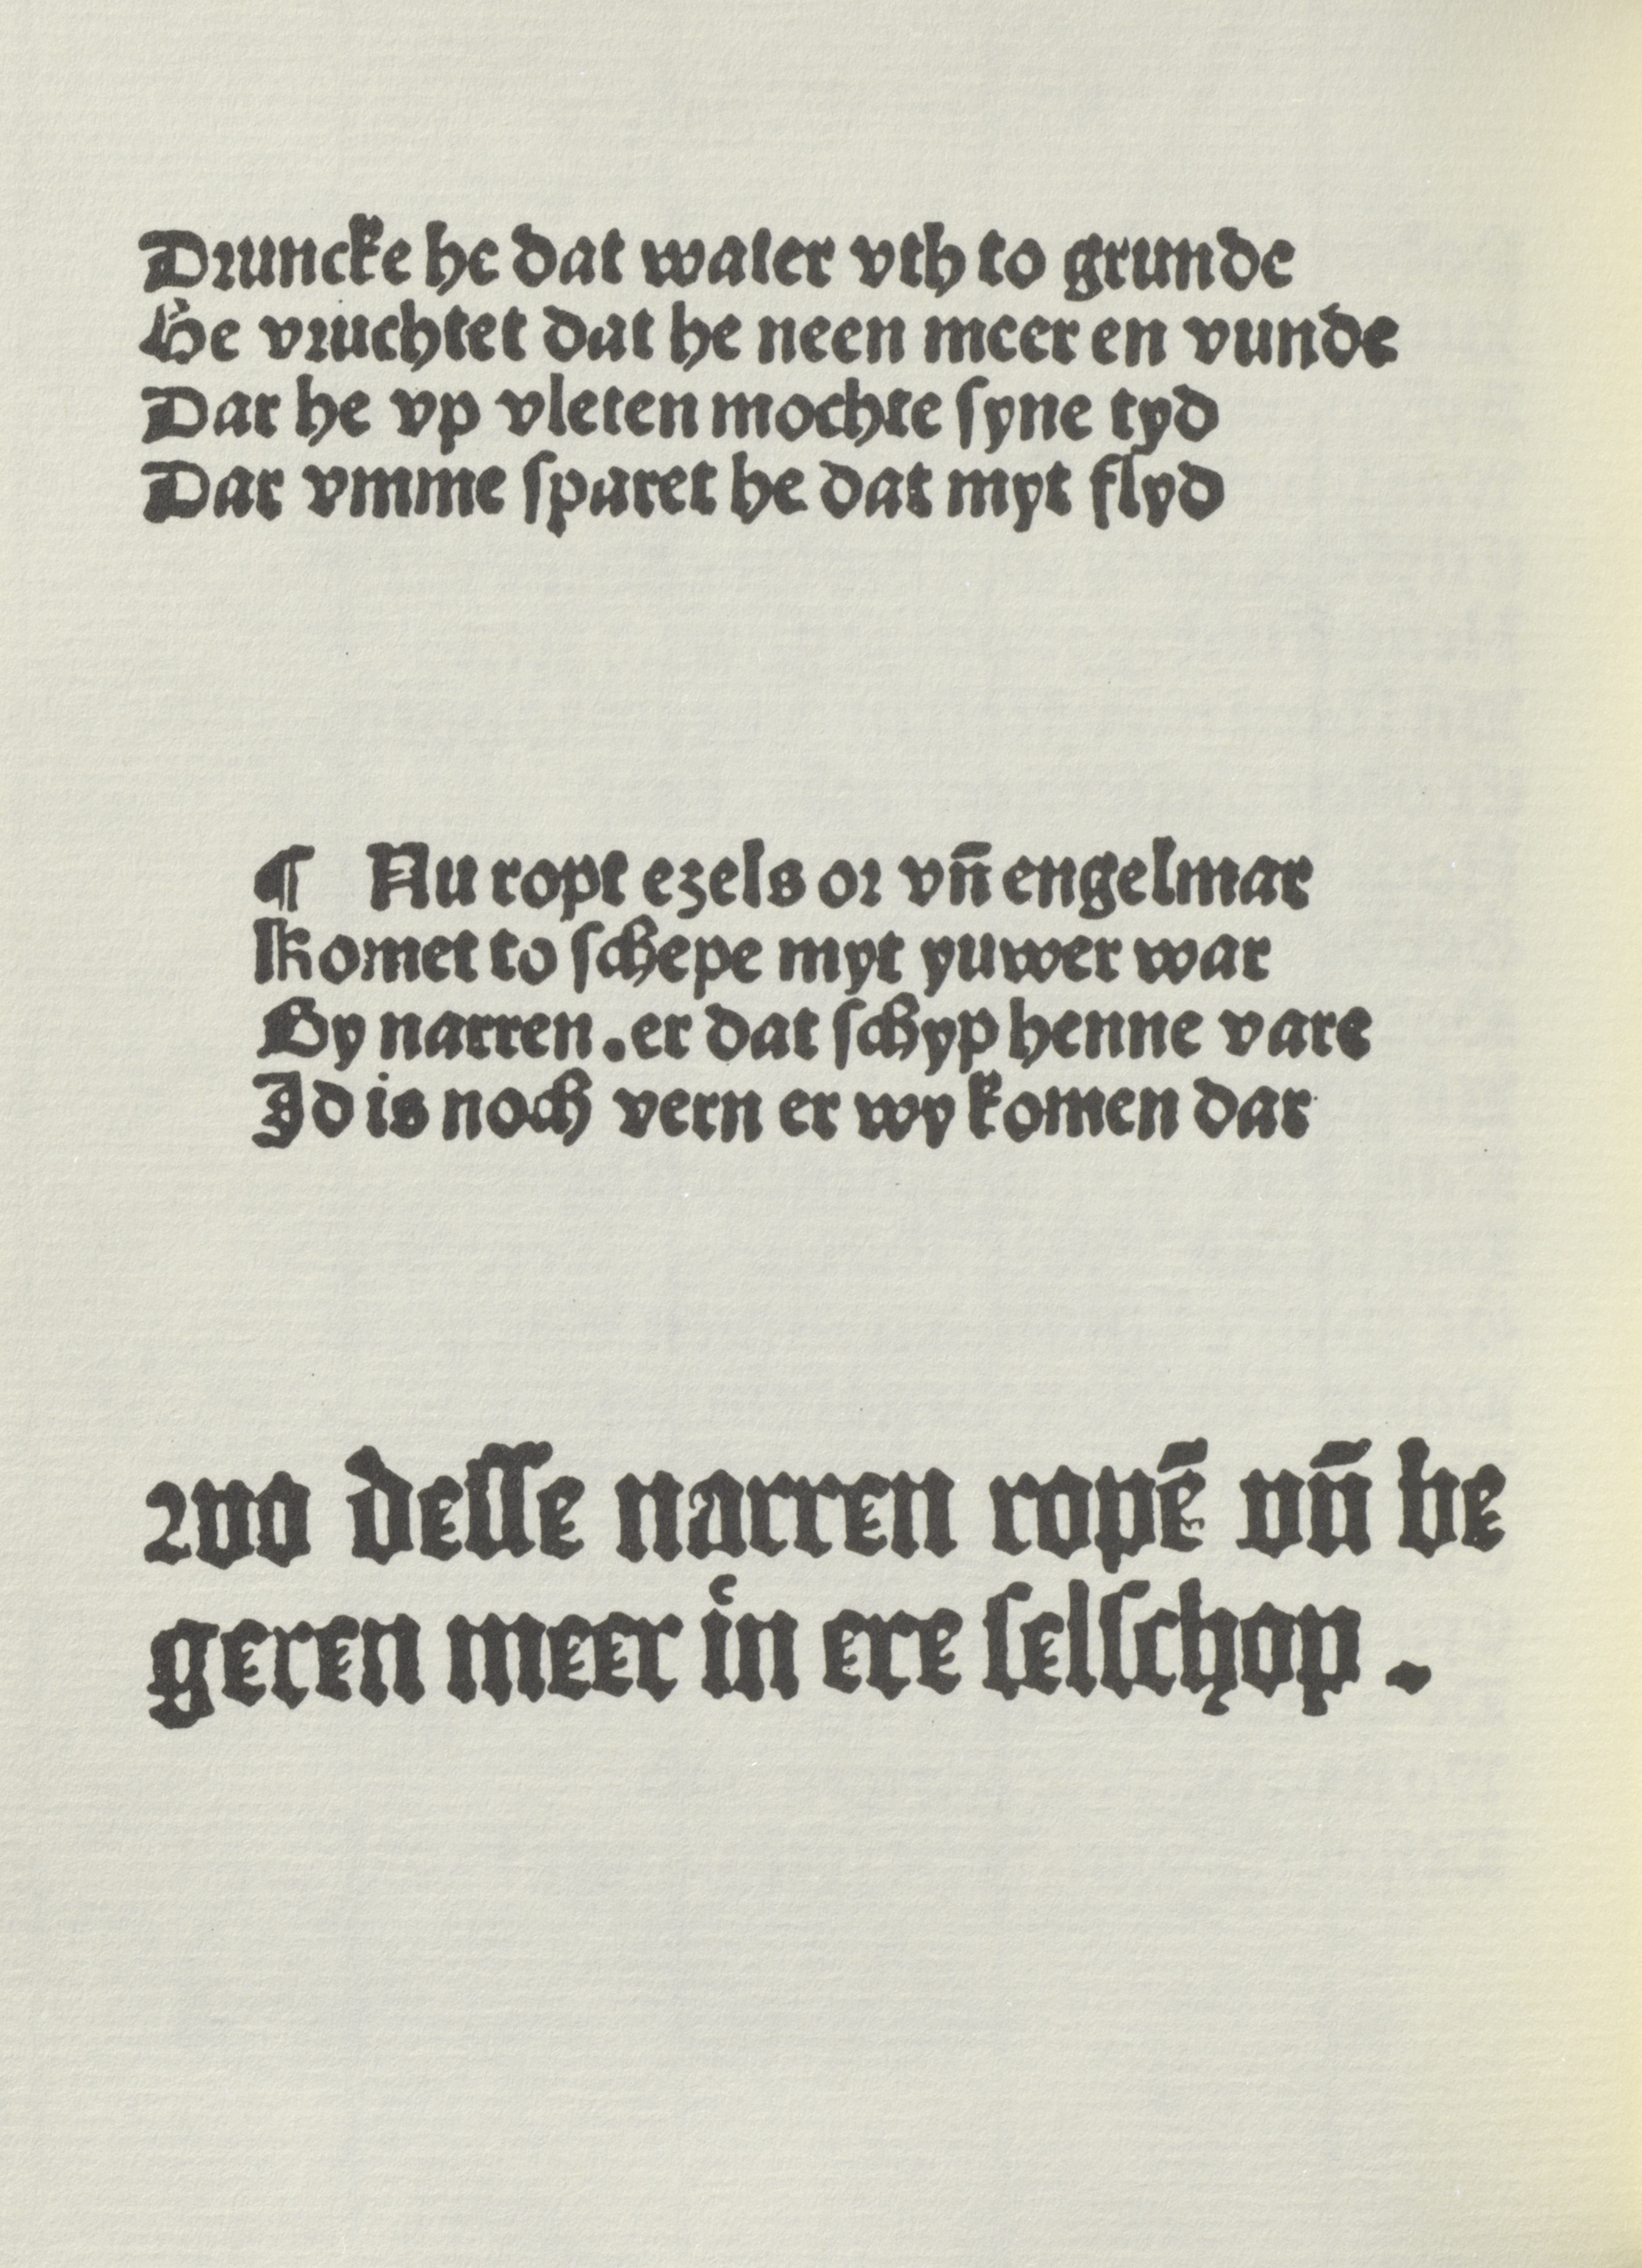 Druncke he dat water vth to grunde
He vruchtet dat he neen meer en vunde
Dar he vp vleten mochte ſyne tyd
Dar vmme ſparet he dat myt flyd
¶ Nu ropt ezels or vn̄ engelmar
Komet to ſchepe myt yuwer war
Gy narren. er dat ſchyp henne vare
Id is noch vern er wy komen dar
wo deſſe narren ropē vn̄ be
geren meer in ere ſelſchop.